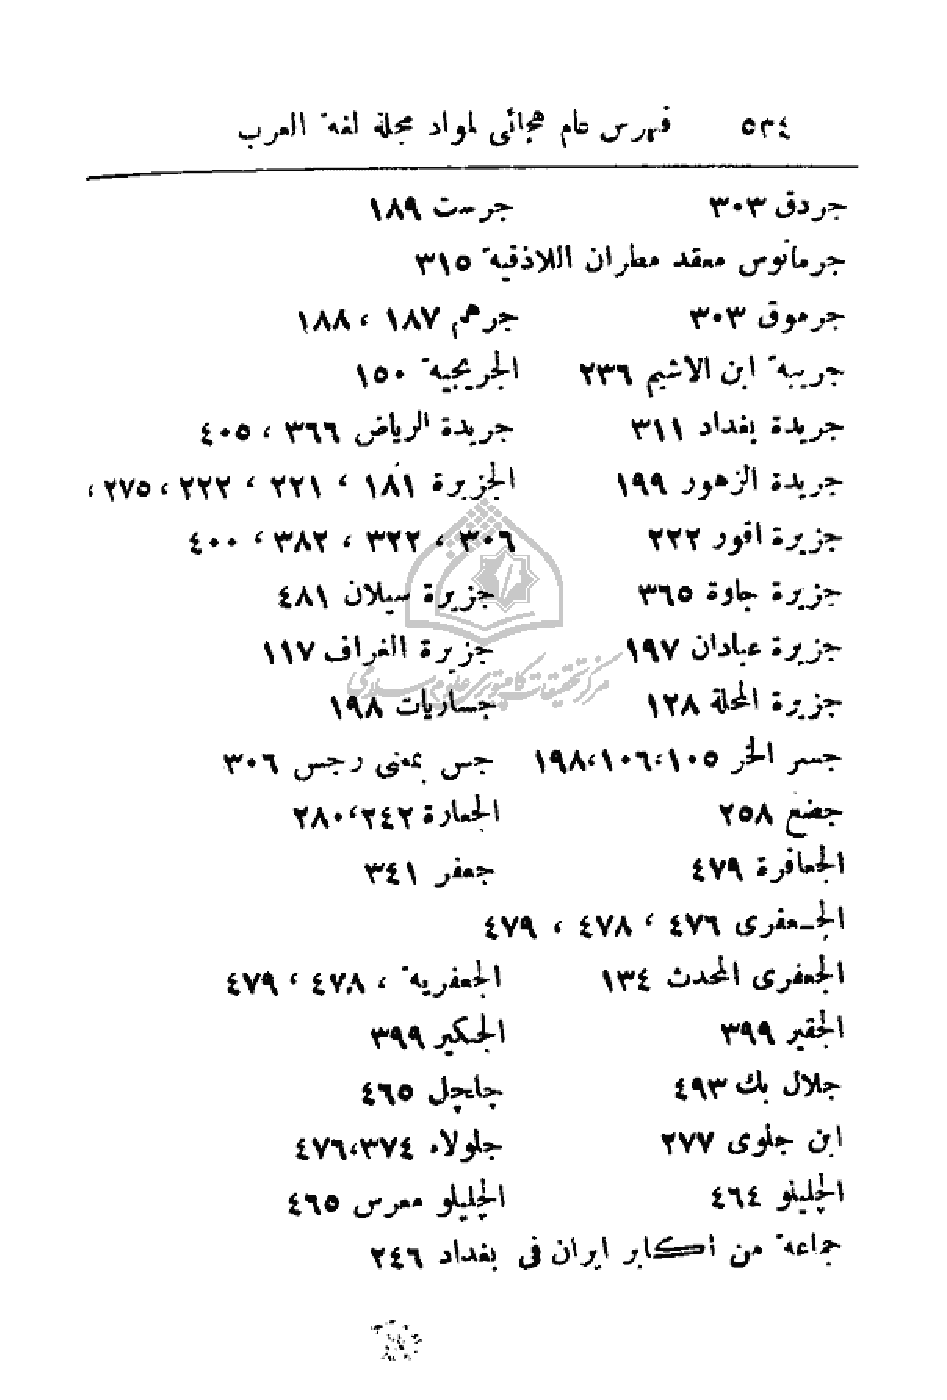 ٥٣٤ فهرس عام هجائى لمواد مجلة لغة العرب
جردق ٣٠٣ جرست ١٨٩
جرمانوس معقد مطران اللاذقية ٣١٥
جرموق ٣٠٣ جرهم ١٨٧ ، ١٨٨
جريبة ابن الاشيم ٢٣٦ الجريجية ١٥٠
جريدة بغداد ٣١١ جريدة الرياض ٣٦٦ ، ٤٠٥
جريدة الزهور ١٩٩ الجزيرة ١٨١ ، ٢٢١ ، ٢٢٢ ، ٢٧٥ ،
جزيرة اقور ٢٢٢ ٣٠٦ ، ٣٢٢ ، ٣٨٢ ، ٤٠٠
جزيرة جاوة ٣٦٥ جزيرة سيلان ٤٨١
جزيرة عبادان ١٩٧ جزيرة الغراف ١١٧
جزيرة المحلة ١٢٨ جساريات ١٩٨
جسر الخر ١٠٥،١٠٦،١٩٨ جس بمعنى رجس ٣٠٦
جضع ٢٥٨ الجعارة ٢٤٢،٢٨٠
الجعافرة ٤٧٩ جعفر ٣٤١
الجـعفرى ٤٧٦ ، ٤٧٨ ، ٤٧٩
الجعفرى المحدث ١٣٤ الجعفرية ، ٤٧٨ ، ٤٧٩
الجقير ٣٩٩ الجكير ٣٩٩
جلال بك ٤٩٣ جلجل ٤٦٥
ابن جلوى ٢٧٧ جلولاء ٣٧٤،٤٧٦
الجليلو ٤٦٤ الجليلو معرس ٤٦٥
جماعة من أكابر ايران فى بغداد ٢٤٦
مركز تحقيقات كامپيوترى علوم اسلامى